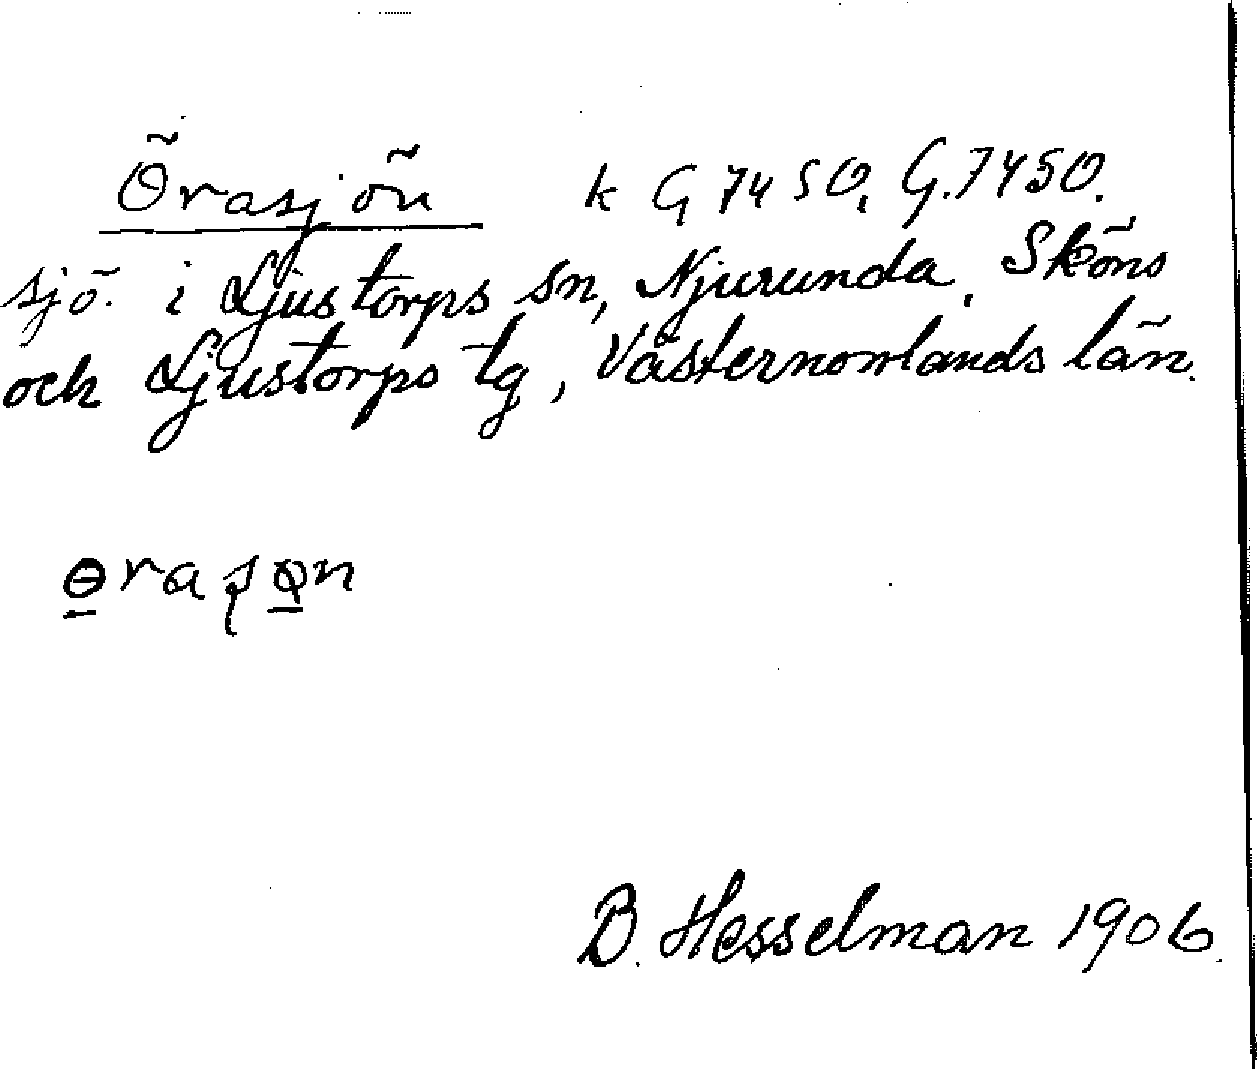 Örasjön k G 7450, G. 7450.
sjö. i Ljustorps sn, Njurunda, Sköns
och Ljustorps tg, Västernorrlands län.
B. Hesselman 1906.